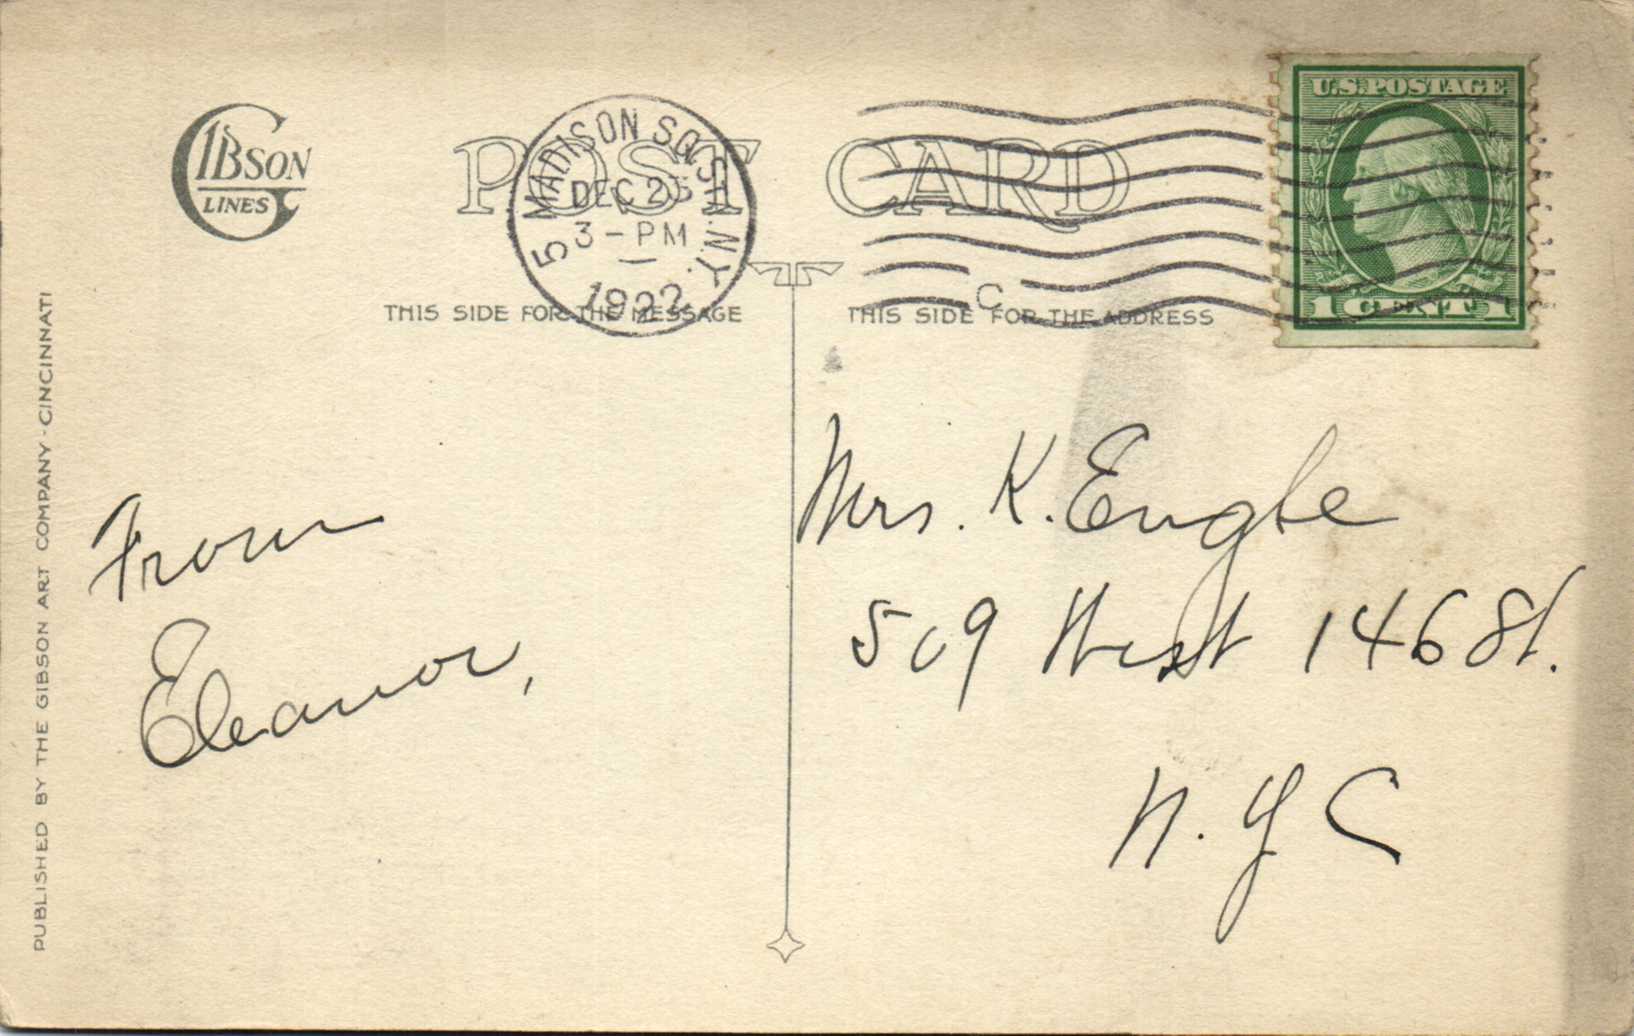 GIBSON
LINES
POST CARD
MADISON SQ. STA. N.Y.
5
DEC 23
3-PM
1922
U.S. POSTAGE
1 CENT 1
C
THIS SIDE FOR THE MESSAGE
THIS SIDE FOR THE ADDRESS
PUBLISHED BY THE GIBSON ART COMPANY - CINCINNATI
From
Eleanor,
Mrs. K. Engle
509 West 146 St.
N. Y C